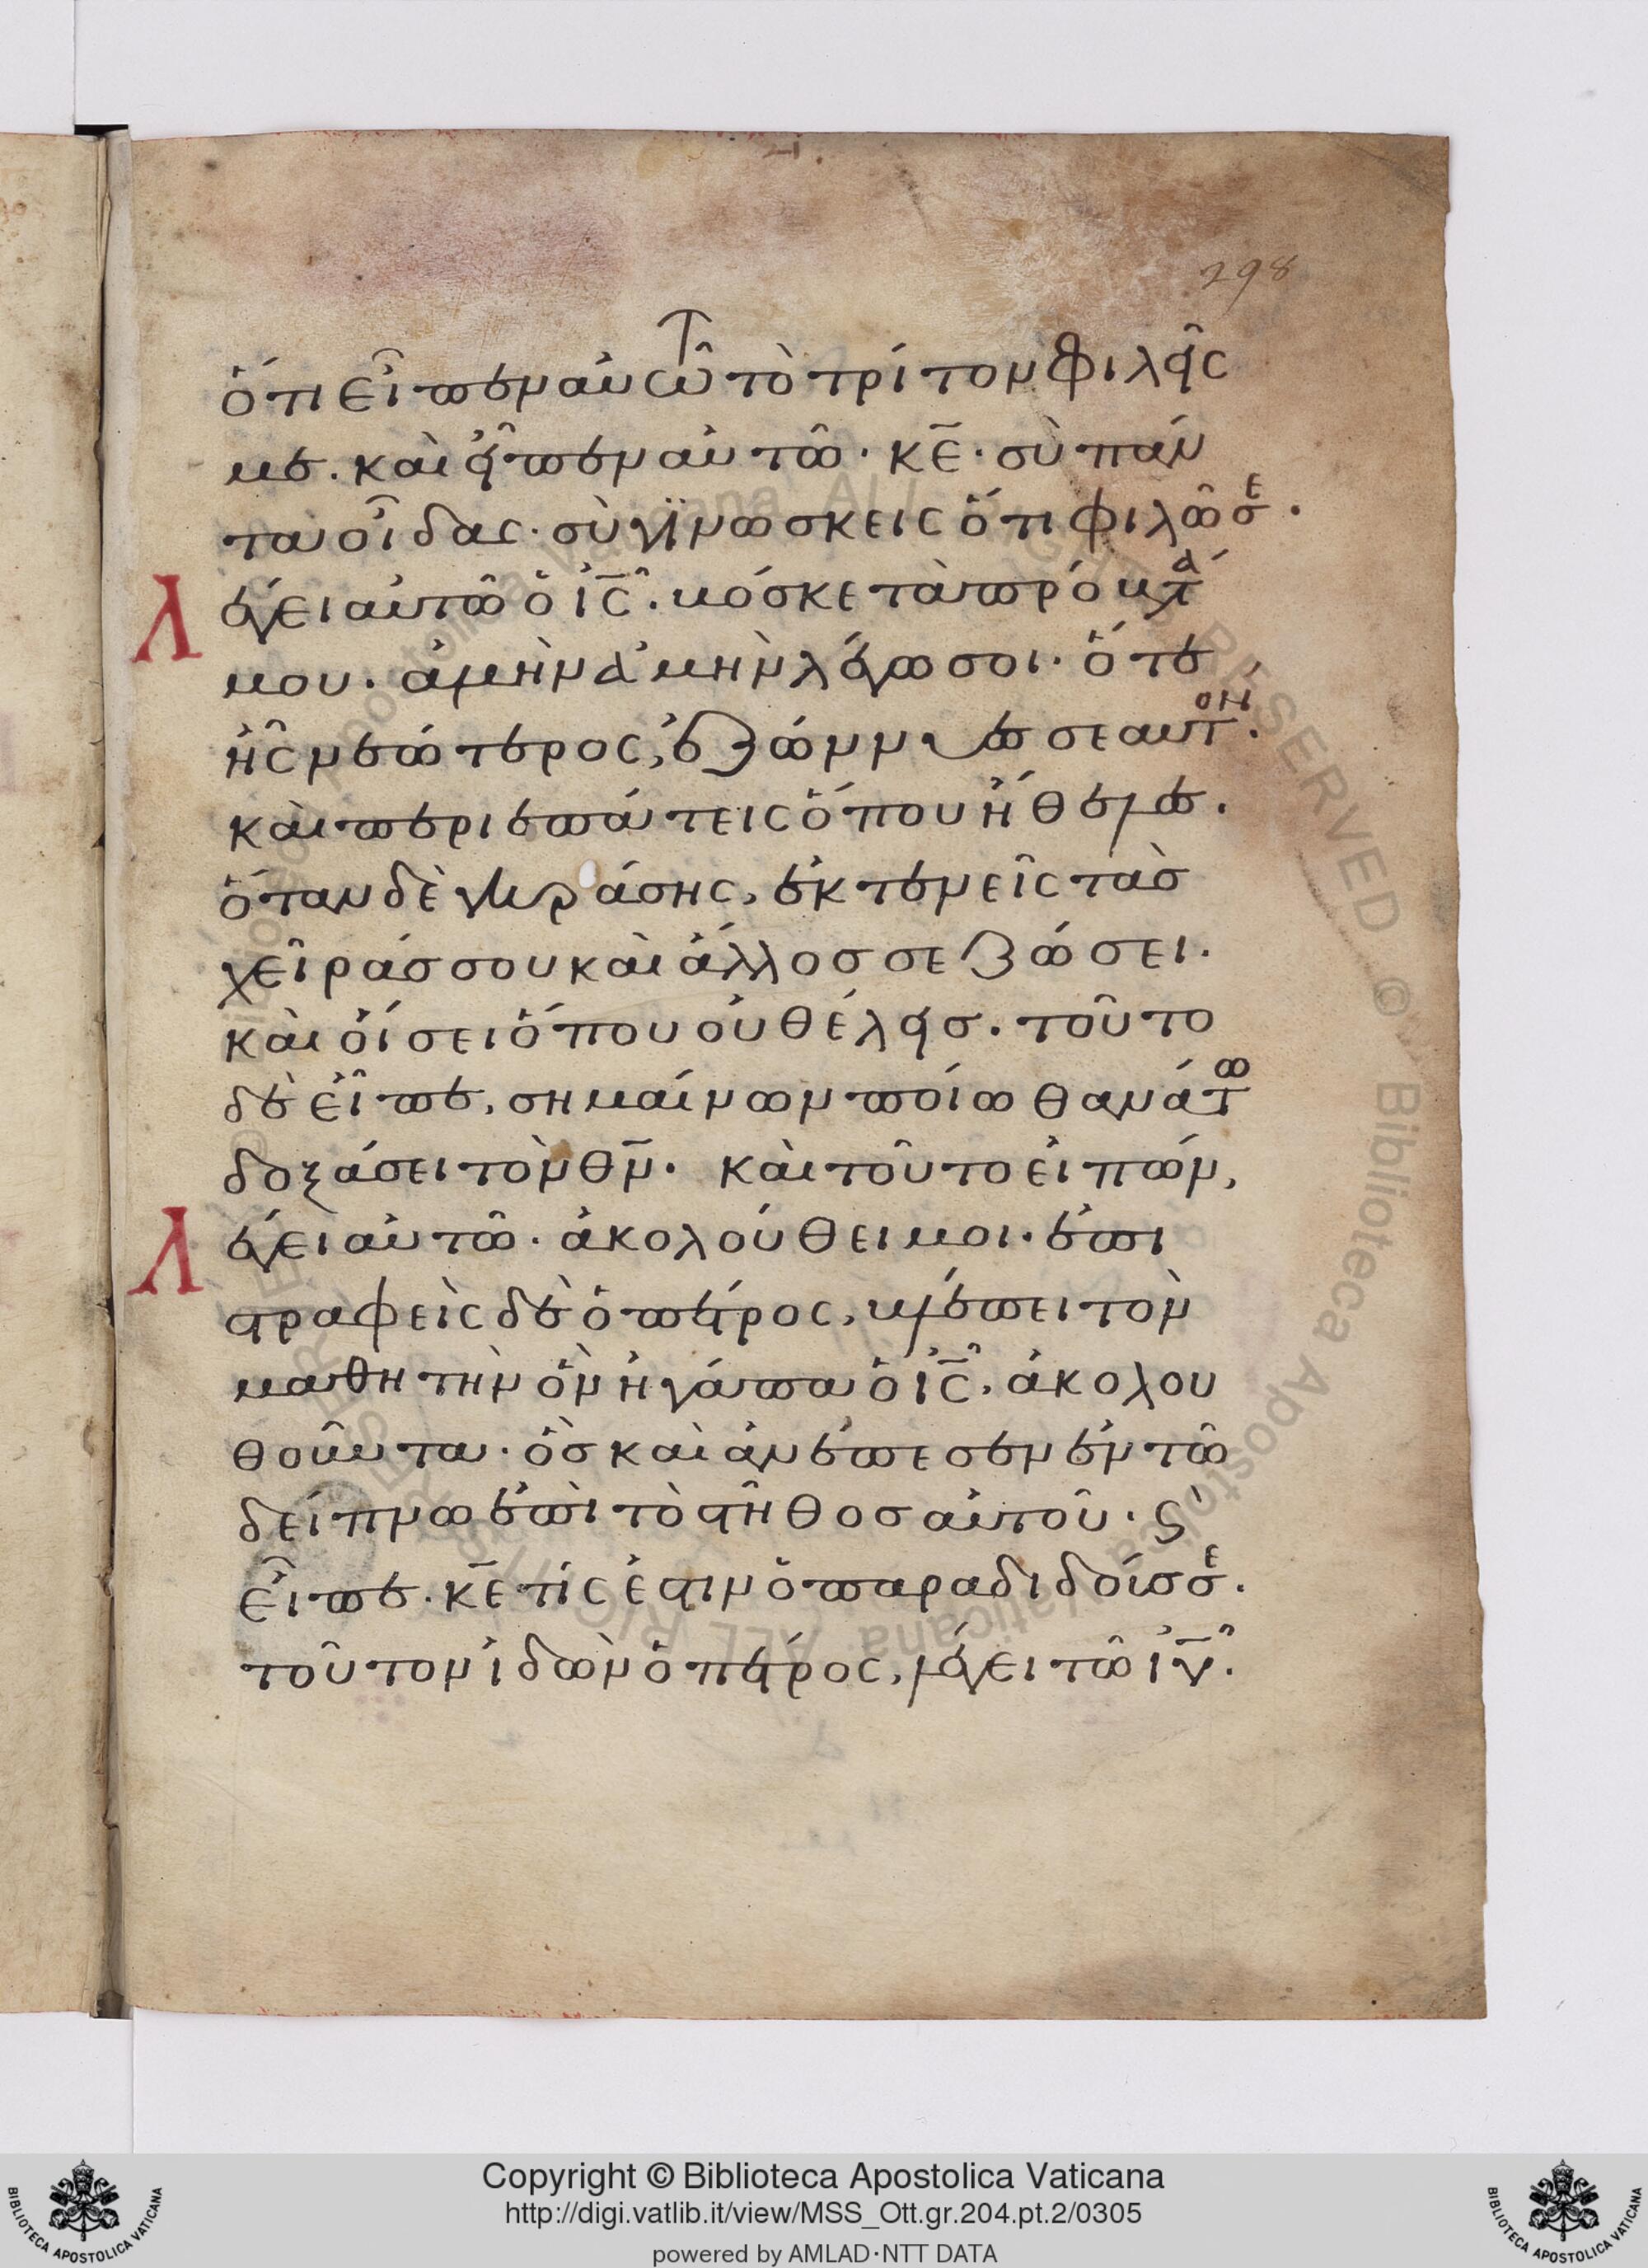 298
ὅτι εἶπεν αὐτῶ τὸ τρίτον φιλεῖς
με. καὶ εἶπεν αὐτῶ· κ̅ε̅· σὺ πάν
τα οἶδας· σὺ γϊνωσκεις ὅτι φιλῶ σὲ.
Λέγει αὐτῶ ὁ ι̅ς̅. βόσκε τὰ πρόβατά
μου. ἀμὴν ἀμὴν λέγω σοι· ὅτε
ἦς νεώτερος, ἐζώννυες σεαυτόν.
καὶ περιεπάτεις ὅπου ἤθελες.
ὅταν δὲ γηράσης, ἐκτενεῖς τὰσ
χεῖράσ σου καὶ ἄλλοσ σε ζώσει.
καὶ οἴσει ὅπου οὐ θέλεισ. τοῦτο
δὲ εἶπε, σημαίνων ποίω θανάτω
δοξάσει τὸν θ̅ν̅. καὶ τοῦτο εἰπών,
Λέγει αὐτῶ· ἀκολούθει μοι. ἐπι
στραφεὶς δὲ ὁ πέτρος, βλέπει τὸν
μαθητὴν ὃν ἠγάπα ὁ ι̅ς̅, ἀκολου
θοῦντα· ὃσ καὶ ἀνέπεσεν ἐν τῶ
δείπνω ἐπὶ τὸ στῆθοσ αὐτοῦ. ϛ̀
εἶπε. κ̅ε̅ τίς ἐστιν ὁ παραδιδούσ σὲ.
τοῦτον ἰδὼν ὁ πέτρος, λέγει τῶ ι̅υ̅.
Copyright © Biblioteca Apostolica Vaticana
http://digi.vatlib.it/view/MSS_Ott.gr.204.pt.2/0305
powered by AMLAD·NTT DATA